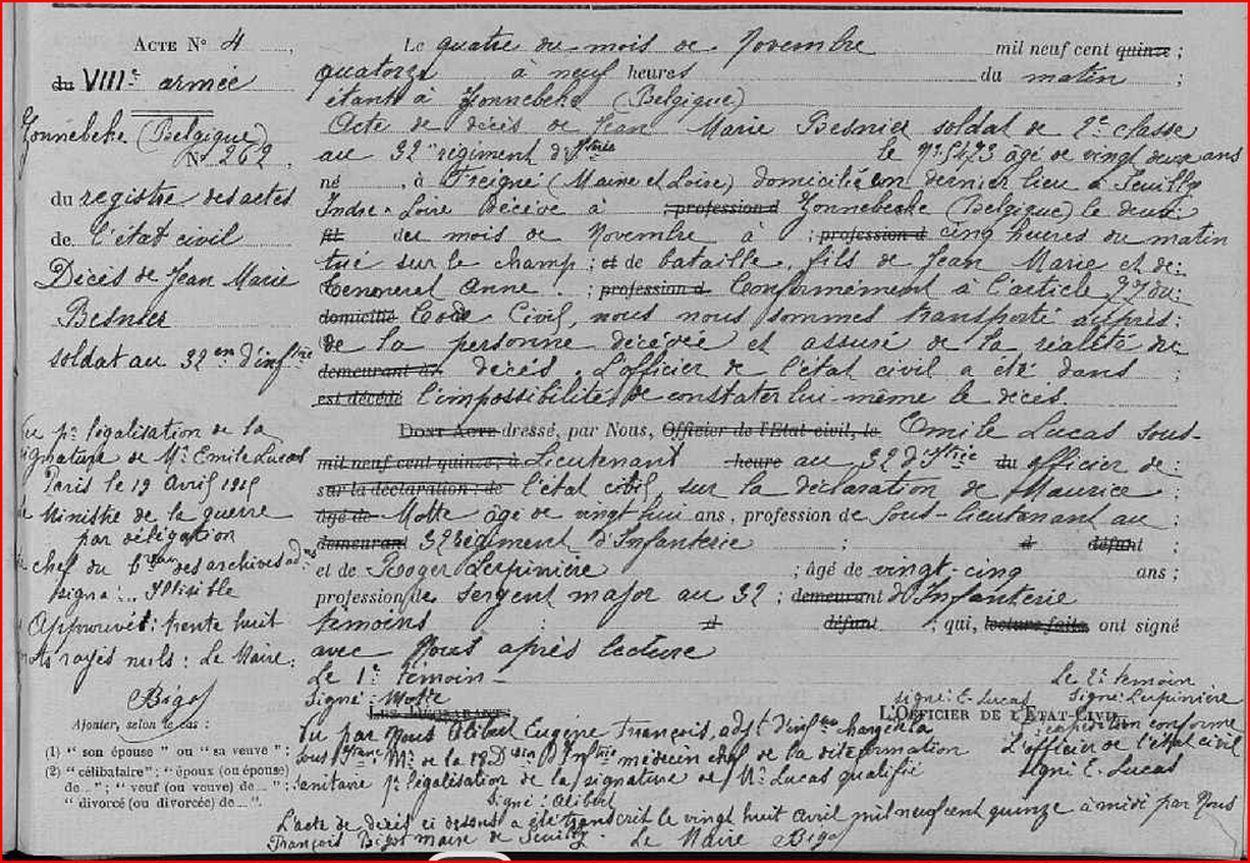 ACTE N° 4
du VIIIe armée
Zonnebeke (Belgique)
N° 262
du registre des actes
de l'état civil
Décès de Jean Marie
Besnier
soldat au 32em d'inftrie
Vu pr légalisation de la
signature de Mr Emile Lucas
Paris le 19 Avril 1915
le Ministre de la guerre
par délégation
le chef du bureau des archives adves
signé : Illisible
Approuvé : trente huit
mots rayés nuls : Le Maire :
Bigot
Ajouter, selon le cas :
(1) " son épouse " ou " sa veuve " ;
(2) " célibataire " ; " époux (ou épouse)
de... " ; " veuf (ou veuve) de... " ;
" divorcé (ou divorcée) de... ".
Le quatre du mois de Novembre mil neuf cent quinze ;
quatorze à neuf heures du matin ;
étant à Zonnebeke (Belgique)
Acte de décès de Jean Marie Besnier soldat de 2e classe
au 32e régiment d'Inftrie le No 5473 âgé de vingt deux ans
né , à Freigné (Maine et Loire) domicilié en dernier lieu à Seuilly
Indre & Loire décédé à ; profession d Zonnebecke (Belgique) le deux
fil du mois de Novembre à ; profession d cinq heures du matin
tué sur le champ ; et de bataille, fils de Jean Marie et de
Anne ; profession d Conformément à l'article 77 du
domicilié Code Civil, nous nous sommes transporté auprès
de la personne décédée et assuré de la réalité du
demeurant à décés. L'officier de l'état civil a été dans ;
est décédé l'impossibilité de constater lui-même le décès.
DONT ACTE dressé, par Nous, Officier de l'Etat-civil, le Emile Lucas sous-
mil neuf cent quinze, à Lieutenant heure au 32 d'Iftrie du officier de
sur la déclaration : de l'état civil, sur la déclaration de Maurice ;
âgé de Motte âgé de vingt hui ans, profession de Sous-lieutenant au ;
demeurant 32 Régiment d'Infanterie ; d défunt ;
et de Roger Lespinière ; âgé de vingt-cinq ans ;
profession de sergent major au 32 ; demeurant d'Infanterie
témoins : d défunt ; qui, lecture faite ont signé
avec Nous après lecture
Le 1er témoin - Le 2e témoin
Signé : Motte signé : E. Lucas Signé Lespinière
LES DÉCLARANTS L'OFFICIER DE L'ETAT-CIVIL
Vu par Nous Alibert Eugène François, adjt d'inf chargé de la expédition conforme
sous Mt de la 18 Don D'Inftrie médecin chef de la dite formation L'officier de l'état civil
sanitaire pr légalisation de la signature de Mr Lucas qualifié signé E. Lucas
Signé : Alibert
L'acte de décès ci dessus a été transcrit le vingt huit avril mil neuf cent quinze à midi par Nous
François Bigot maire de Seuilly. Le Maire Bigot